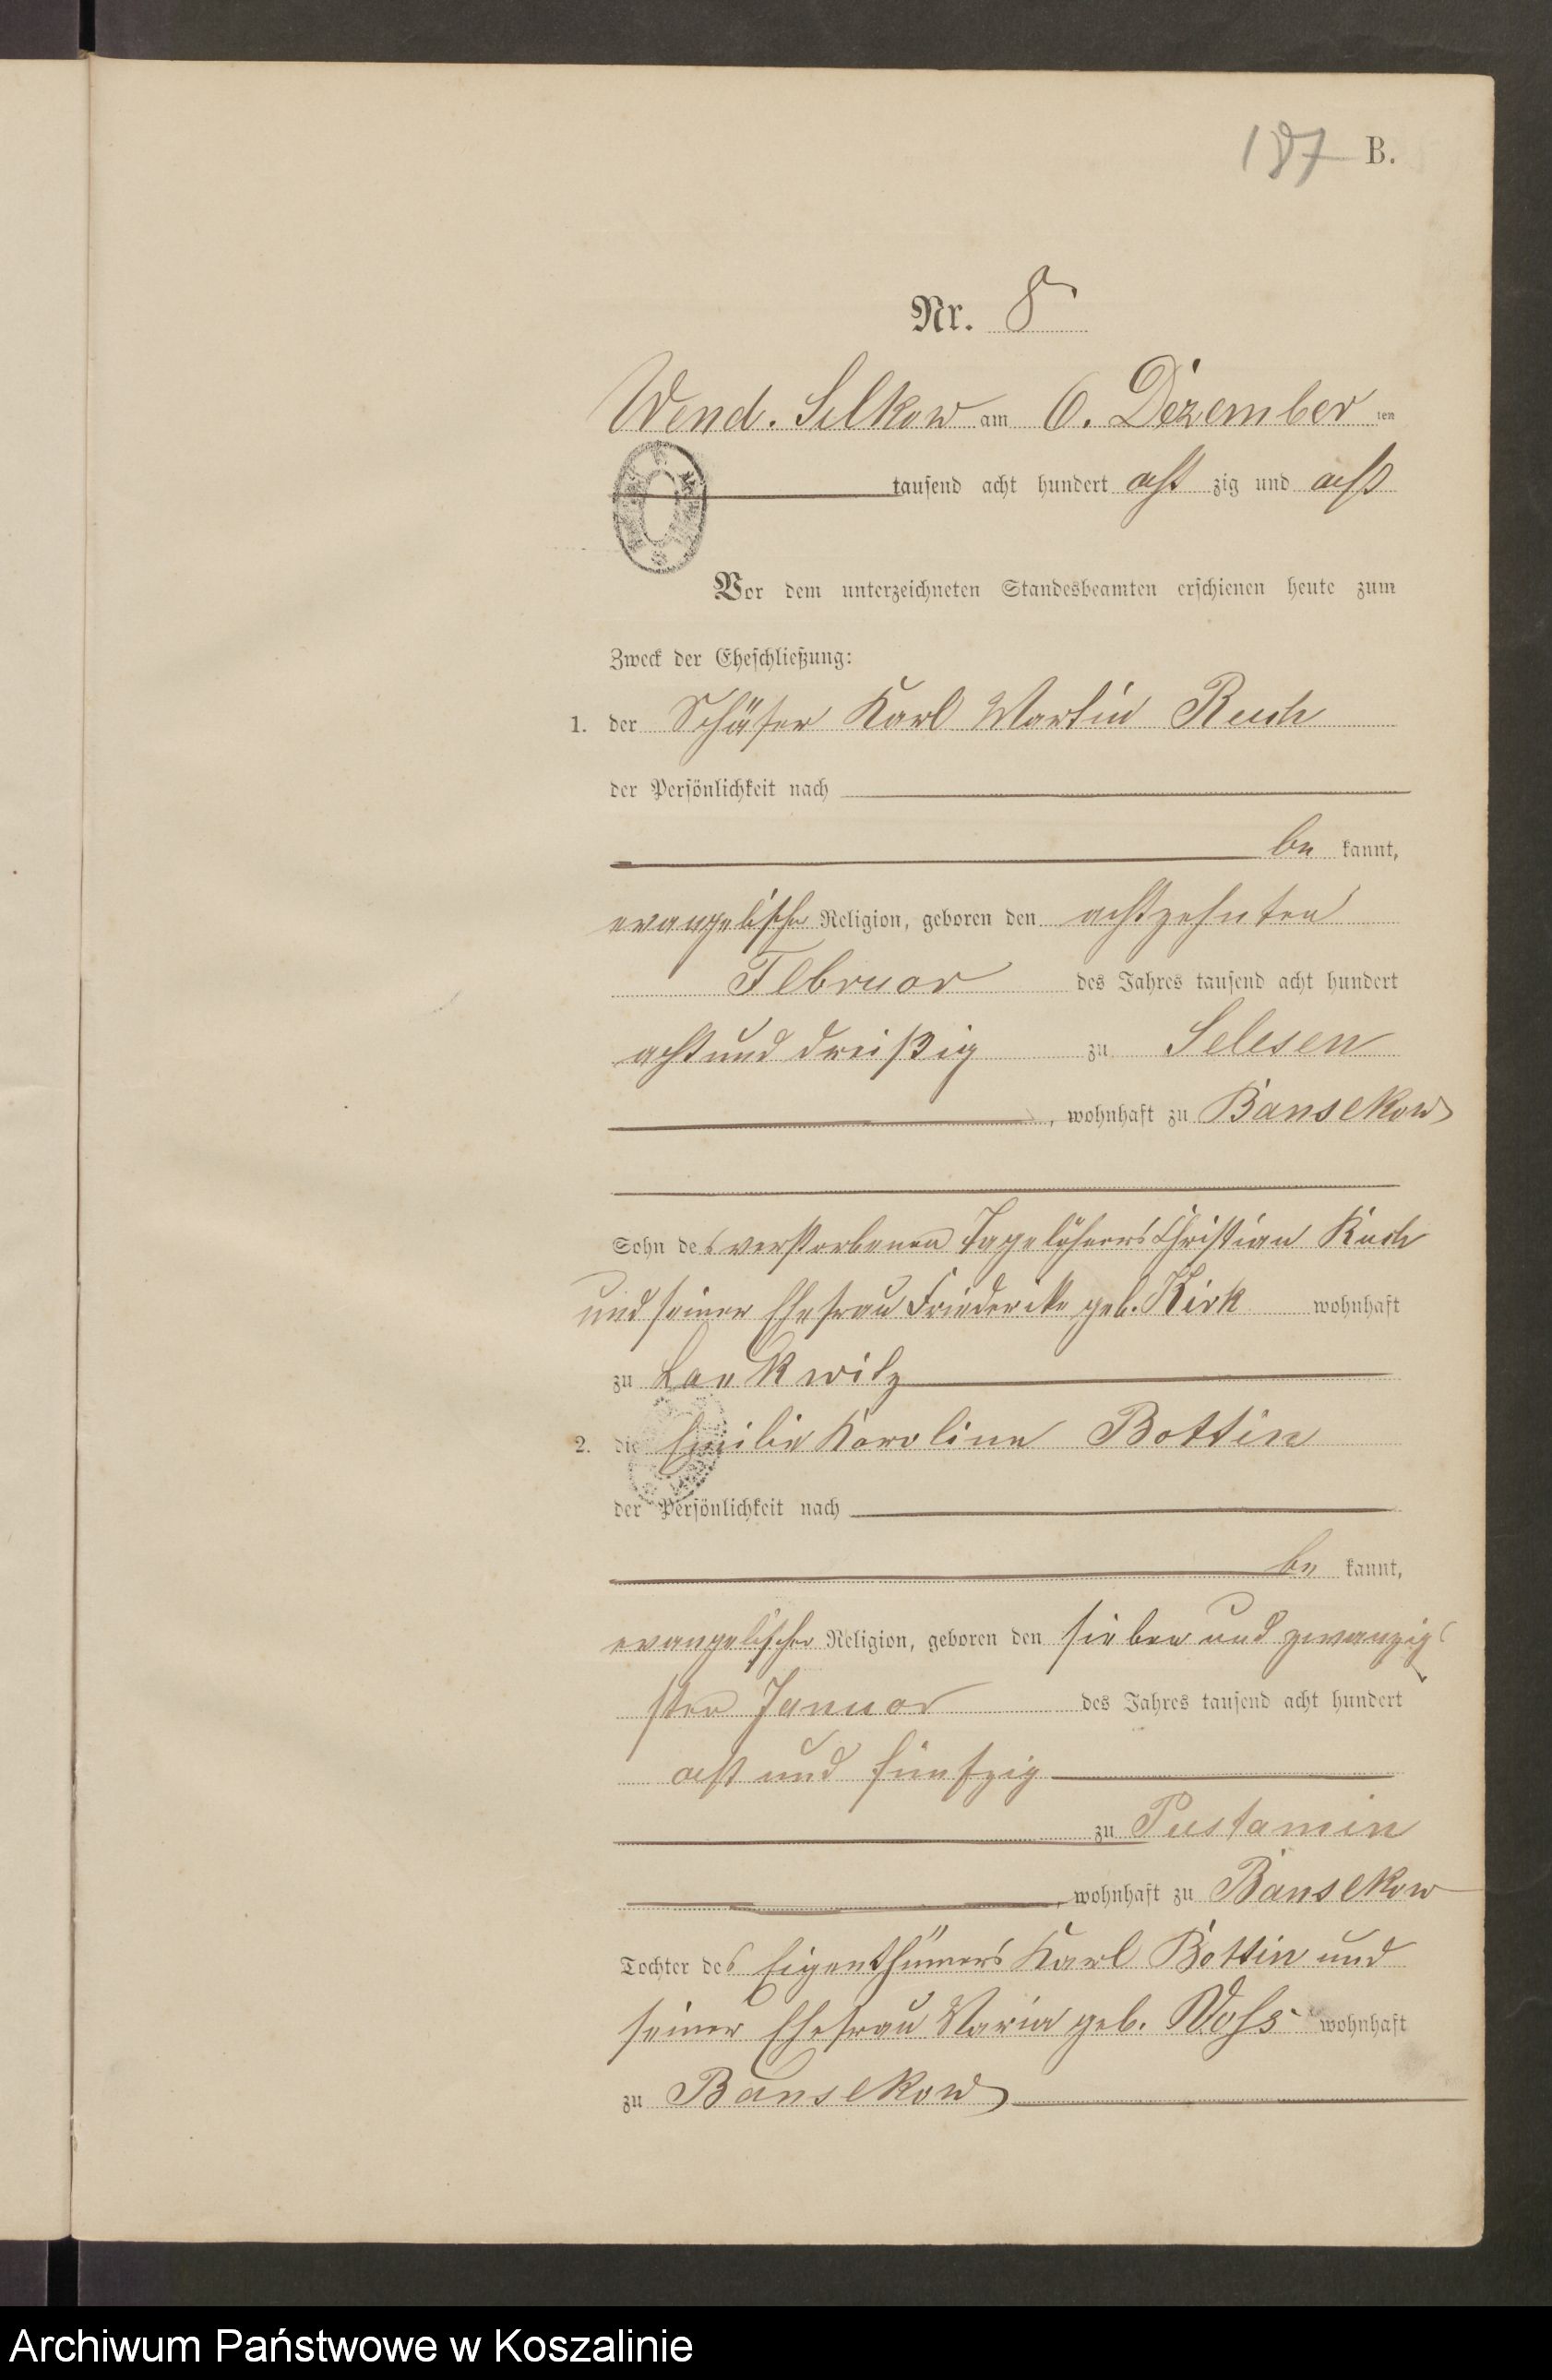 187 B.
Nr. 8
Wend. Silkow am 6. Dezember ten
tausend acht hundert acht zig und acht
Vor dem unterzeichneten Standesbeamten erschienen heute zum
Zweck der Eheschließung:
1. der Schäfer Karl Martin Ruch
der Persönlichkeit nach
be kannt,
evangelischer Religion, geboren den achtzehnten
Februar des Jahres tausend acht hundert
acht und dreißig zu Selesen
, wohnhaft zu Bansekow
Sohn des verstorbenen Tagelöhners Christian Ruch
und seiner Ehefrau Friederike geb. Kirk wohnhaft
zu Lankwitz
2. die Emilie Karoline Bottin
der Persönlichkeit nach
be kannt,
evangelischer Religion, geboren den sieben und zwanzig
sten Januar des Jahres tausend acht hundert
acht und fünfzig
zu Pustamin
, wohnhaft zu Bansekow
Tochter des Eigenthümers Karl Bottin und
seiner Ehefrau Maria geb. Voß wohnhaft
zu Bansekow
Archiwum Państwowe w Koszalinie